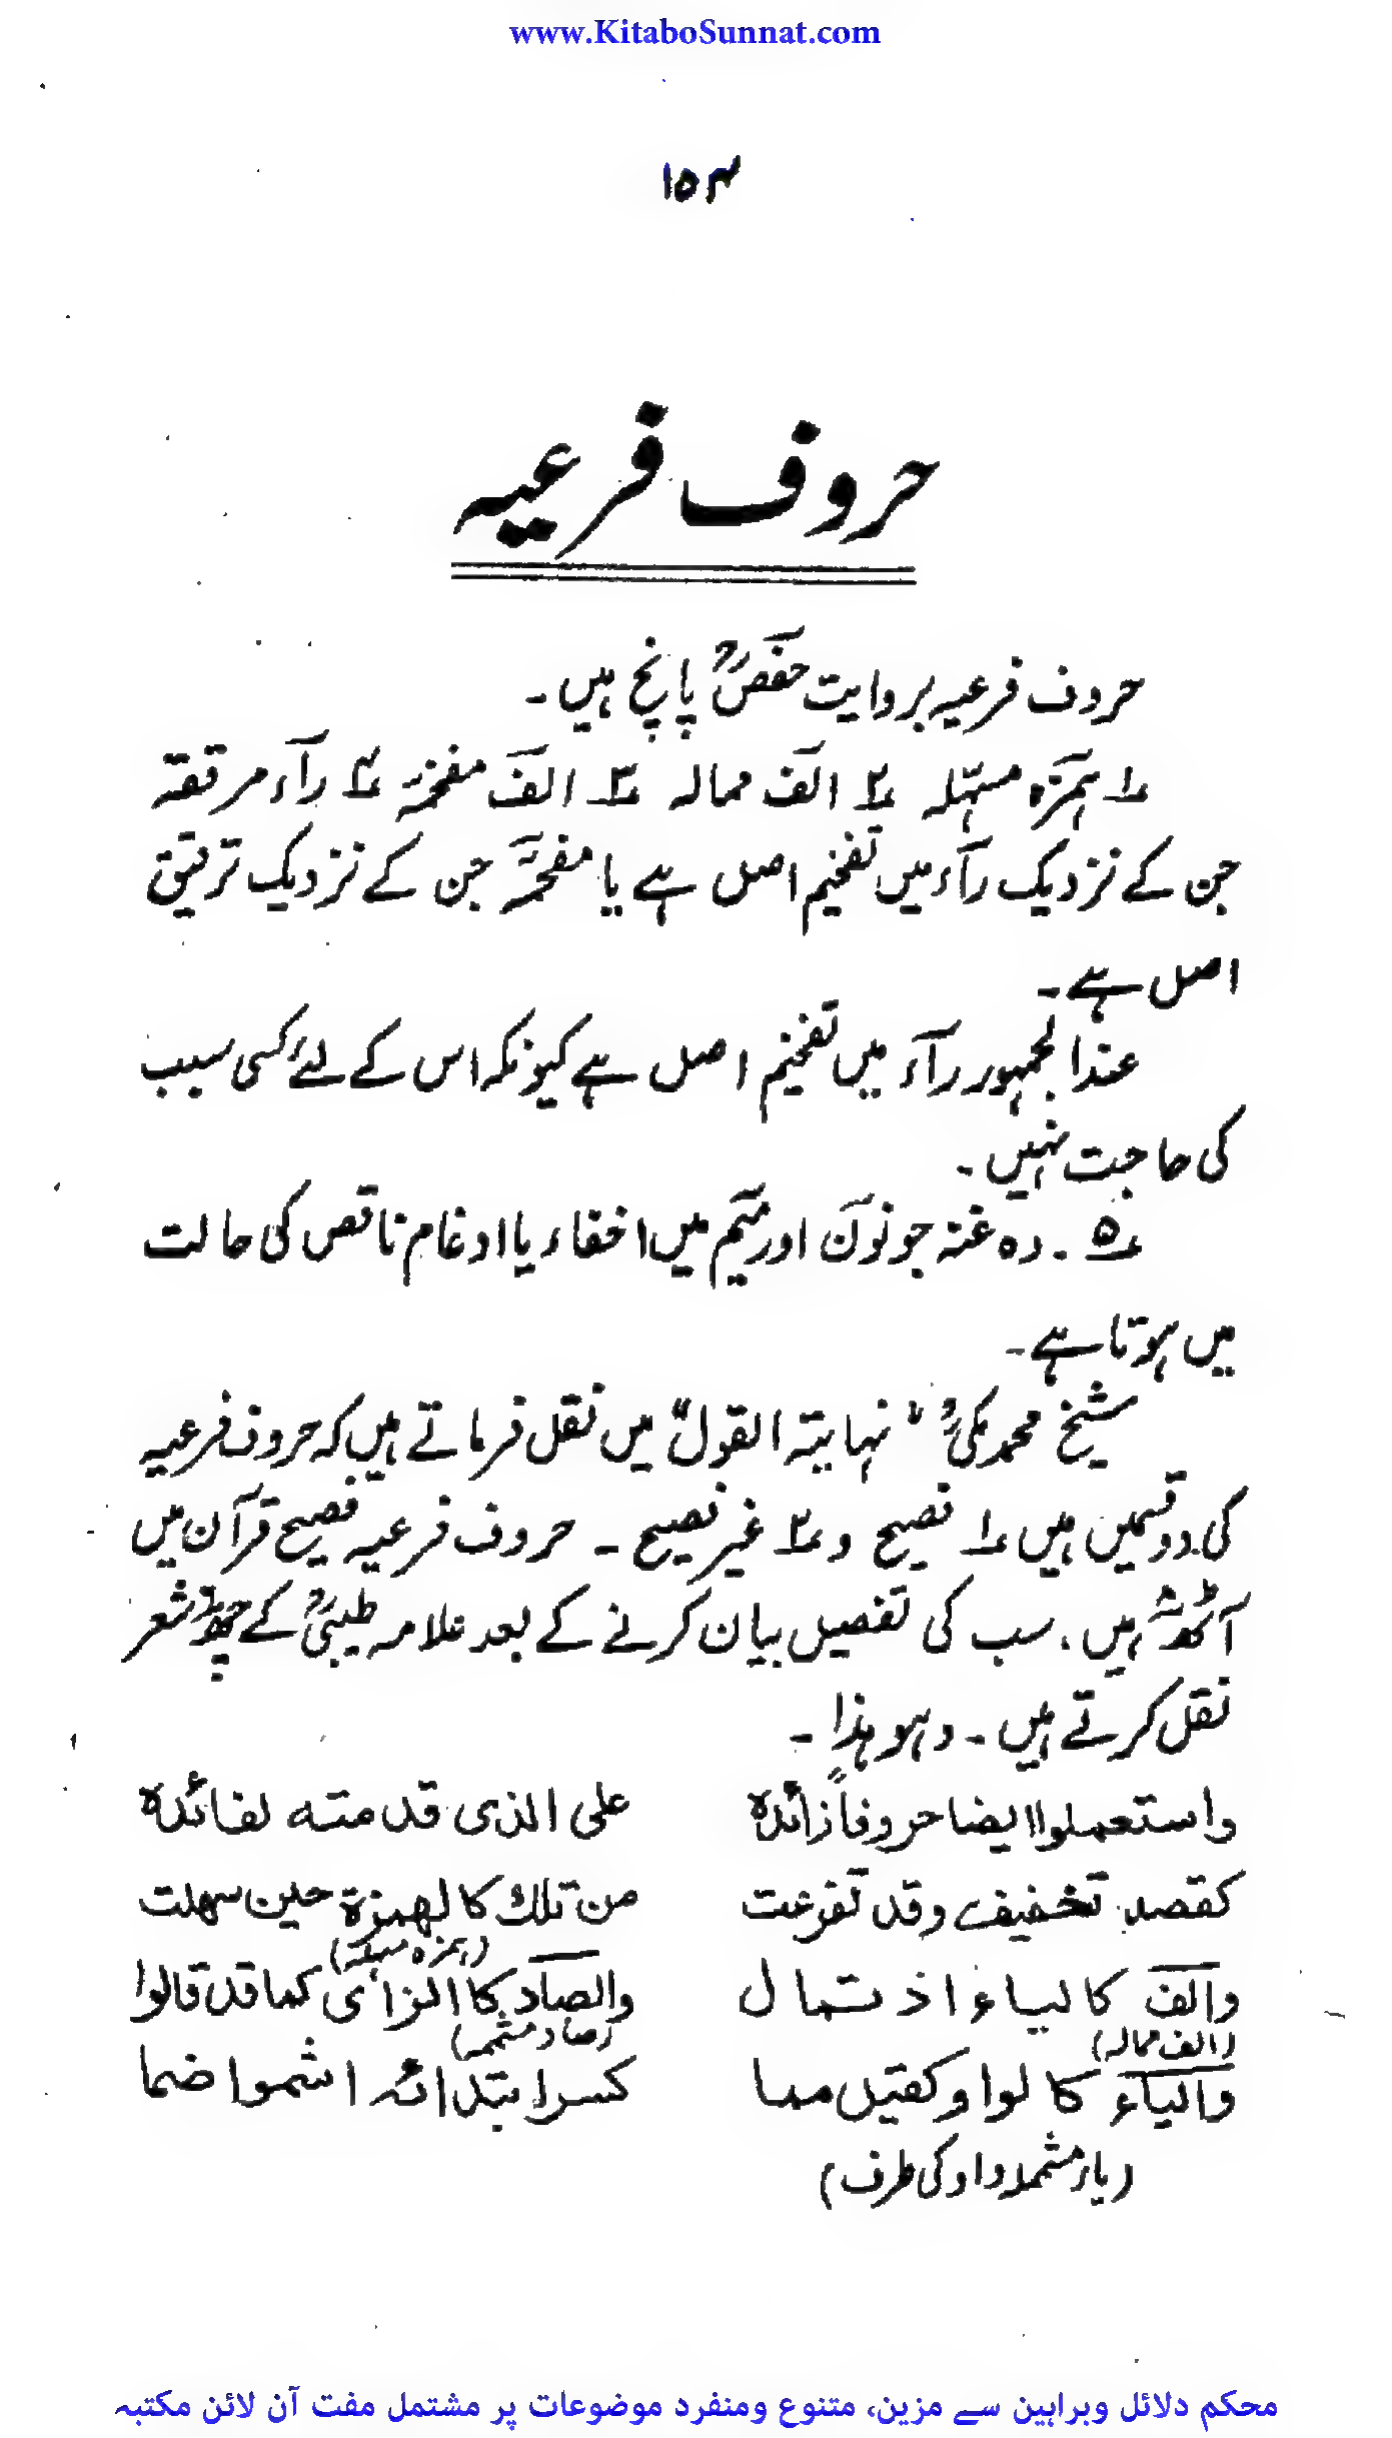 www.KitaboSunnat.com
۱۵۴
حروف فرعیہ
حروف فرعیہ بروایت حفصؒ پانچ ہیں۔
۱؎ ہمزہ مسہلہ ۲؎ الف ممالہ ۳؎ الف مفخمہ ۴؎ رآء مرققہ
جن کے نزدیک رآء میں تفخیم اصل ہے یا مفخمہ جن کے نزدیک ترقیق
اصل ہے۔
عندالجمہور رآء میں تفخیم اصل ہے کیونکہ اس کے لئے کسی سبب
کی حاجت نہیں۔
۵؎ ۔ وہ غنہ جو نون اور میم میں اخفاء یا ادغام ناقص کی حالت
میں ہوتا ہے۔
شیخ محمد مکیؒ "نہایتہ القول" میں نقل فرماتے ہیں کہ حروف فرعیہ
کی دو قسمیں ہیں ۱؎ فصیح و ۲؎ غیر فصیح ۔ حروف فرعیہ فصیح قرآن میں
آٹھ ہیں، سب کی تفصیل بیان کرنے کے بعد علامہ طیبیؒ کے چھ شعر
نقل کرتے ہیں ۔ وہو ہذا ۔
واستعملوا ایضا حروفاً زائدہ علی الذی قدمتہ لفائدہ
کقصد تخفیف وقد تفرعت من تلك کالھمزة حین سھلت
(ہمزہ مسہلہ)
والف کالیاء اذ تمال والصاد کالزای کما قد قالوا
(الف ممالہ) (صاد مشمہ)
والیاء کالواو کقیل مما کسر ابتدائہ اشموا ضما
(یاء مشمہ واو کی طرف)
محکم دلائل وبراہین سے مزین، متنوع ومنفرد موضوعات پر مشتمل مفت آن لائن مکتبہ